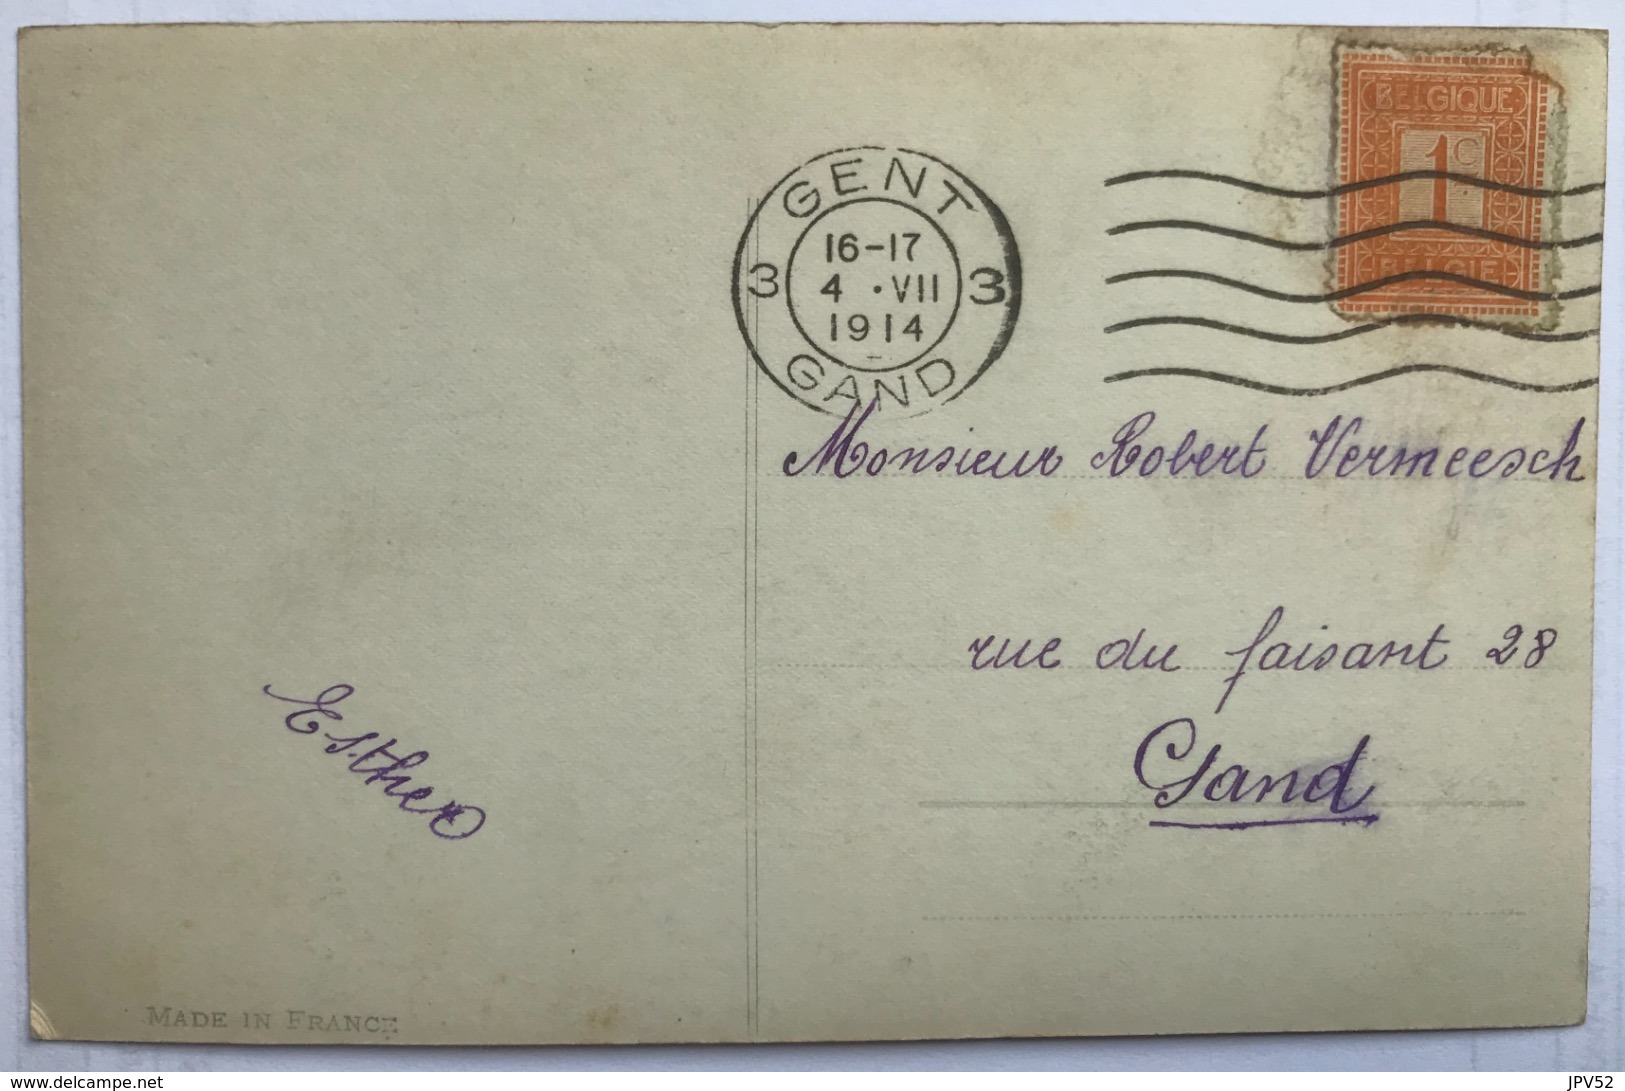 BELGIQUE
1C
BELGIE
GENT
16-17
3 4 •VII 3
1914
GAND
Monsieur Robert Vermeesch
rue du faisant 28
Gand
Esther
MADE IN FRANCE
delcampe.net
JPV52